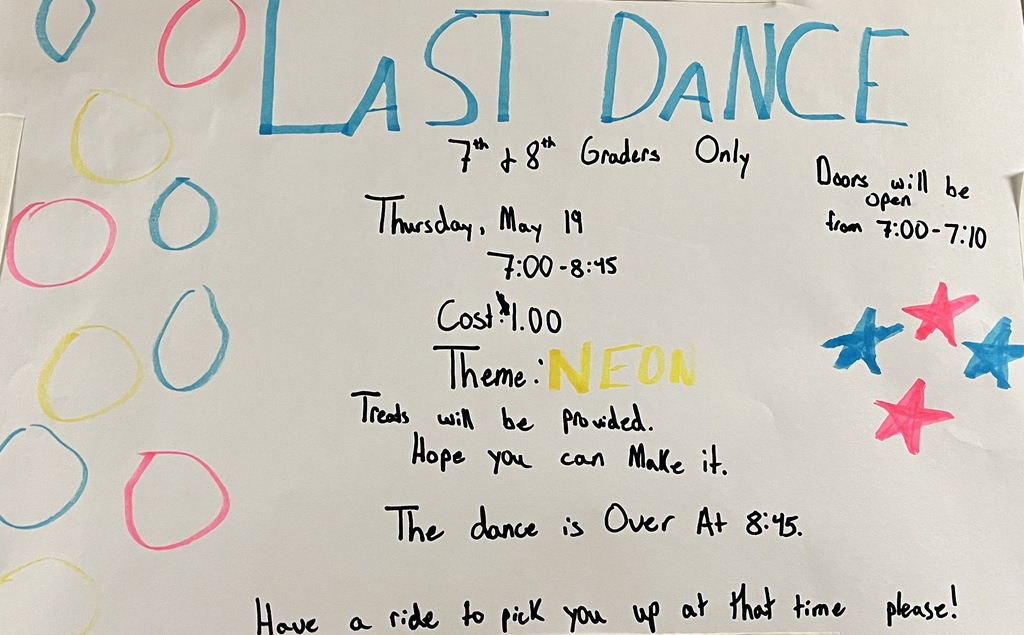 LAST DANCE
7th & 8th Graders Only
Doors will be
open
from 7:00-7:10
Thursday, May 19
7:00-8:45
Cost: $1.00
Theme: NEON
Treats will be provided.
Hope you can Make it.
The dance is Over At 8:45.
Have a ride to pick you up at that time please!